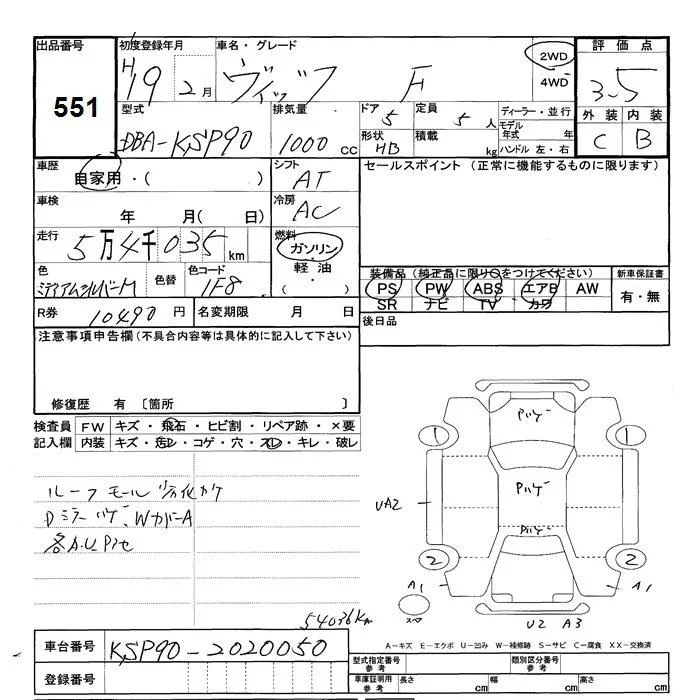 出品番号 初度登録年月 車名・グレード 評価点
551
H19 2月 ヴィッツ F 2WD 4WD 3.5
型式 排気量 ドア 定員 ディーラー・並行 外装 内装
DBA-KSP90 1000cc 5 5人 モデル年式 年 C B
形状 HB 積載 kg ハンドル 左・右
車歴 シフト セールスポイント(正常に機能するものに限ります)
自家用・( ) AT
車検 冷房
年 月( 日) AC
走行 燃料
5万4千035km ガソリン
軽油
・
色 色替 色コード
ミディアムシルバーM 1F8
装備品(純正品に限り○をつけてください) 新車保証書
PS PW ABS エアB AW 有・無
SR ナビ TV カワ
R券 10490円 名変期限 月 日 後日品
注意事項申告欄(不具合内容等は具体的に記入して下さい)
修復歴 有 〔箇所 〕
検査員 FW キズ・飛石・ヒビ割・リペア跡・×要
記入欄 内装 キズ・汚レ・コゲ・穴・スレ・キレ・破レ
ルーフモール劣化カケ
Dミラーハゲ、WカバーA
各A.U P1セ
54036Km
Pハゲ
1 1
Pハゲ
UA2
Pハゲ
2 2
A1 A1
スペア
U2 A3
A-キズ E-エクボ U-凹み W-補修跡 S-サビ C-腐食 XX-交換済
車台番号 KSP90-2020050
登録番号
型式指定番号 参考 類別区分番号 参考
車庫証明用 参考 長さ cm 幅 cm 高さ cm